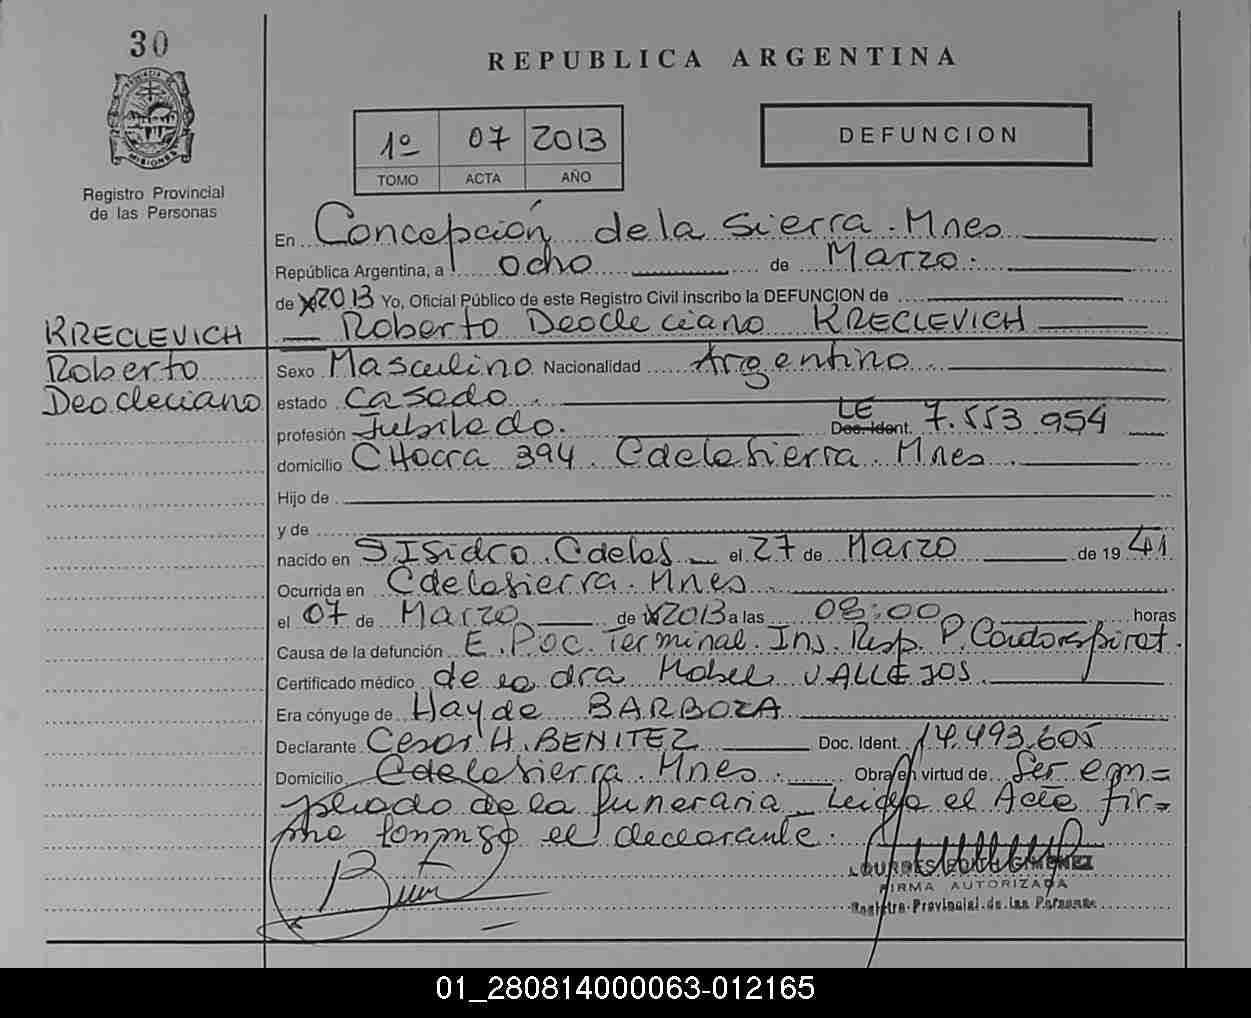 30
PROVINCIA DE
MISIONES
Registro Provincial
de las Personas
REPUBLICA ARGENTINA
1º 07 2013
TOMO ACTA AÑO
DEFUNCION
En Concepción de la Sierra. Mnes
República Argentina, a ocho de Marzo.
de 2013 Yo, Oficial Público de este Registro Civil inscribo la DEFUNCION de
KRECLEVICH
Roberto
Deocleciano
Roberto Deocleciano KRECLEVICH
Sexo Masculino Nacionalidad Argentino
estado Casado
profesión Jubilado. LE Doc. Ident. 7.553.954
domicilio CHacra 394. CdelaSierra. Mnes
Hijo de
y de
nacido en S Isidro. CdelaS el 27 de Marzo de 19 41
Ocurrida en CdelaSierra. Mnes
el 07 de Marzo de 2013 a las 08:00 horas
Causa de la defunción E.Poc. Terminal. Ins. Resp. P. Cardiorespirat.
Certificado médico de la dra Mabel VALLEJOS.
Era cónyuge de Hayde BARBOZA
Declarante Cesar H. BENITEZ Doc. Ident. 14.493.605
Domicilio CdelaSierra. Mnes. Obra en virtud de Ser em=
pleado de la funeraria Leida el Acta fir=
ma conmigo el declarante.
LOURDES EDITH GIMENEZ
FIRMA AUTORIZADA
Registro Provincial de las Personas
01_280814000063-012165